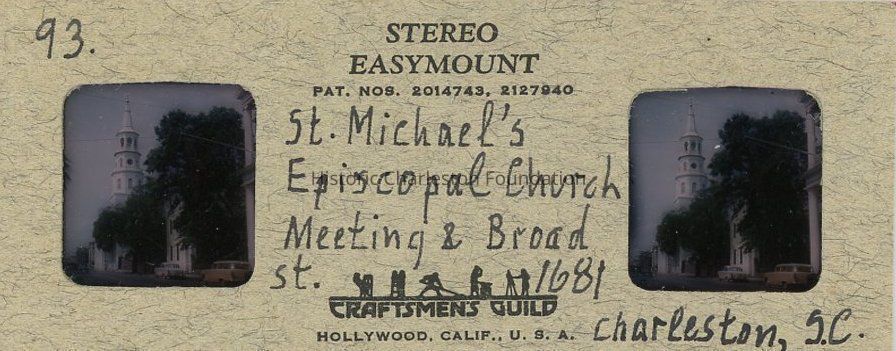 93.
STEREO
EASYMOUNT
PAT. NOS. 2014743, 2127940
St. Michael's
Episcopal Church
Historic Charleston Foundation
Meeting & Broad
St. 1681
CRAFTSMEN'S GUILD
HOLLYWOOD, CALIF., U. S. A.
Charleston, S.C.